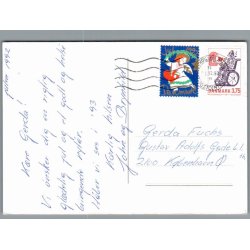 julen 1992
Kære Gerda!
Vi ønsker dig en rigtig
Glædelig jul og et godt og
lykkebringende nytår.
Håber vi ses i '93
Kærlig hilsen
John og
DANMARK 3.75
Gerda Fuchs
Gustav Adolfs Gade
2100 København Ø